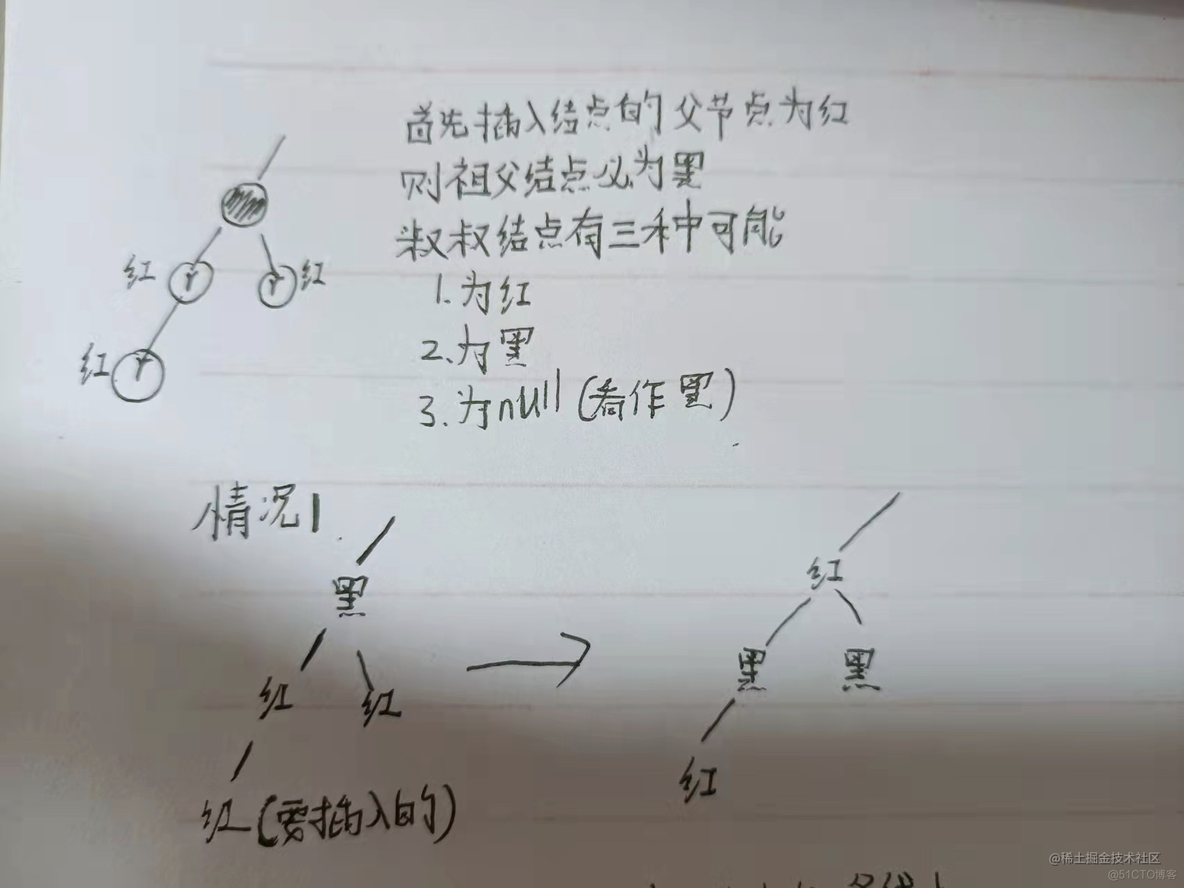 首先插入结点的父节点为红
则祖父结点必为黑
叔叔结点有三种可能
1.为红
2.为黑
3.为null(看作黑)
红 r r 红
红 r
情况1
黑
红 红
红(要插入的)
红
黑 黑
红
@稀土掘金技术社区
@51CTO博客